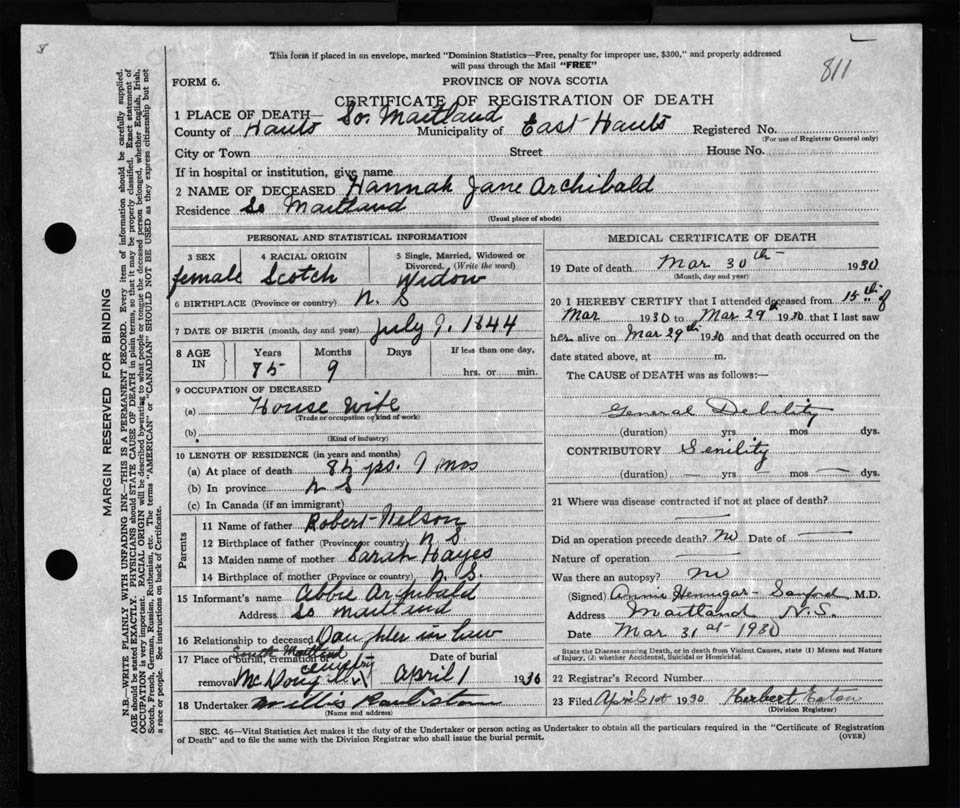 This form if placed in an envelope, marked "Dominion Statistics—Free, penalty for improper use, $300," and properly addressed
will pass through the Mail "FREE"
811
FORM 6.
PROVINCE OF NOVA SCOTIA
CERTIFICATE OF REGISTRATION OF DEATH
1 PLACE OF DEATH— So. Maitland
County of Hants Municipality of East Hants Registered No.
(For use of Registrar General only)
City or Town Street House No.
If in hospital or institution, give name
2 NAME OF DECEASED Hannah Jane Archibald
Residence So Maitland
(Usual place of abode)
PERSONAL AND STATISTICAL INFORMATION
3 SEX 4 RACIAL ORIGIN 5 Single, Married, Widowed or
Divorced. (Write the word)
female Scotch Widow
6 BIRTHPLACE (Province or country) N. S
7 DATE OF BIRTH (month, day and year) July 9. 1844
8 AGE IN Years Months Days If less than one day,
85 9 hrs. or min.
9 OCCUPATION OF DECEASED
(a) House wife
(Trade or occupation or kind of work)
(b)
(Kind of industry)
10 LENGTH OF RESIDENCE (in years and months)
(a) At place of death 85 yrs. 9 mos
(b) In province N S
(c) In Canada (if an immigrant)
Parents
11 Name of father Robert Nelson
12 Birthplace of father (Province or country) N S.
13 Maiden name of mother Sarah Hayes
14 Birthplace of mother (Province or country) N. S.
15 Informant's name Abbie Archibald
Address So maitland
16 Relationship to deceased Daughter in law
South Maitland
17 Place of burial, cremation or Cemetry Date of burial
removal April 1 1930
18 Undertaker Willis
(Name and address)
MEDICAL CERTIFICATE OF DEATH
19 Date of death Mar 30th 1930
(Month, day and year)
20 I HEREBY CERTIFY that I attended deceased from 15th of
Mar 1930 to Mar 29th 1930 that I last saw
her alive on Mar 29th 1930 and that death occurred on the
date stated above, at m.
The CAUSE of DEATH was as follows:—
General Debility
(duration) yrs mos dys.
CONTRIBUTORY Senility
(duration) — yrs — mos — dys.
21 Where was disease contracted if not at place of death?
—
Did an operation precede death? No Date of —
Nature of operation —
Was there an autopsy? No
(Signed) Annie Hennigar-Sanford M.D.
Address Maitland N.S.
Date Mar 31st 1930
State the Disease causing Death, or in death from Violent Causes, state (1) Means and Nature
of Injury, (2) whether Accidental, Suicidal or Homicidal.
22 Registrar's Record Number
23 Filed April 1st 1930 Herbert Eaton
(Division Registrar)
SEC. 46—Vital Statistics Act makes it the duty of the Undertaker or person acting as Undertaker to obtain all the particulars required in the "Certificate of Registration
of Death" and to file the same with the Division Registrar who shall issue the burial permit.
(OVER)
MARGIN RESERVED FOR BINDING
N.B.—WRITE PLAINLY WITH UNFADING INK—THIS IS A PERMANENT RECORD. Every item of information should be carefully supplied.
AGE should be stated EXACTLY. PHYSICIANS should STATE CAUSE OF DEATH in plain terms, so that it may be properly classified. Exact statement of
OCCUPATION is very important. RACIAL ORIGIN will be described by stating to what people or tongue the deceased person belonged, whether English, Irish,
Scotch, French, German, Russian, Ruthenian, etc. The terms "AMERICAN" or "CANADIAN" SHOULD NOT BE USED as they express citizenship but not
a race or people. See instructions on back of Certificate.